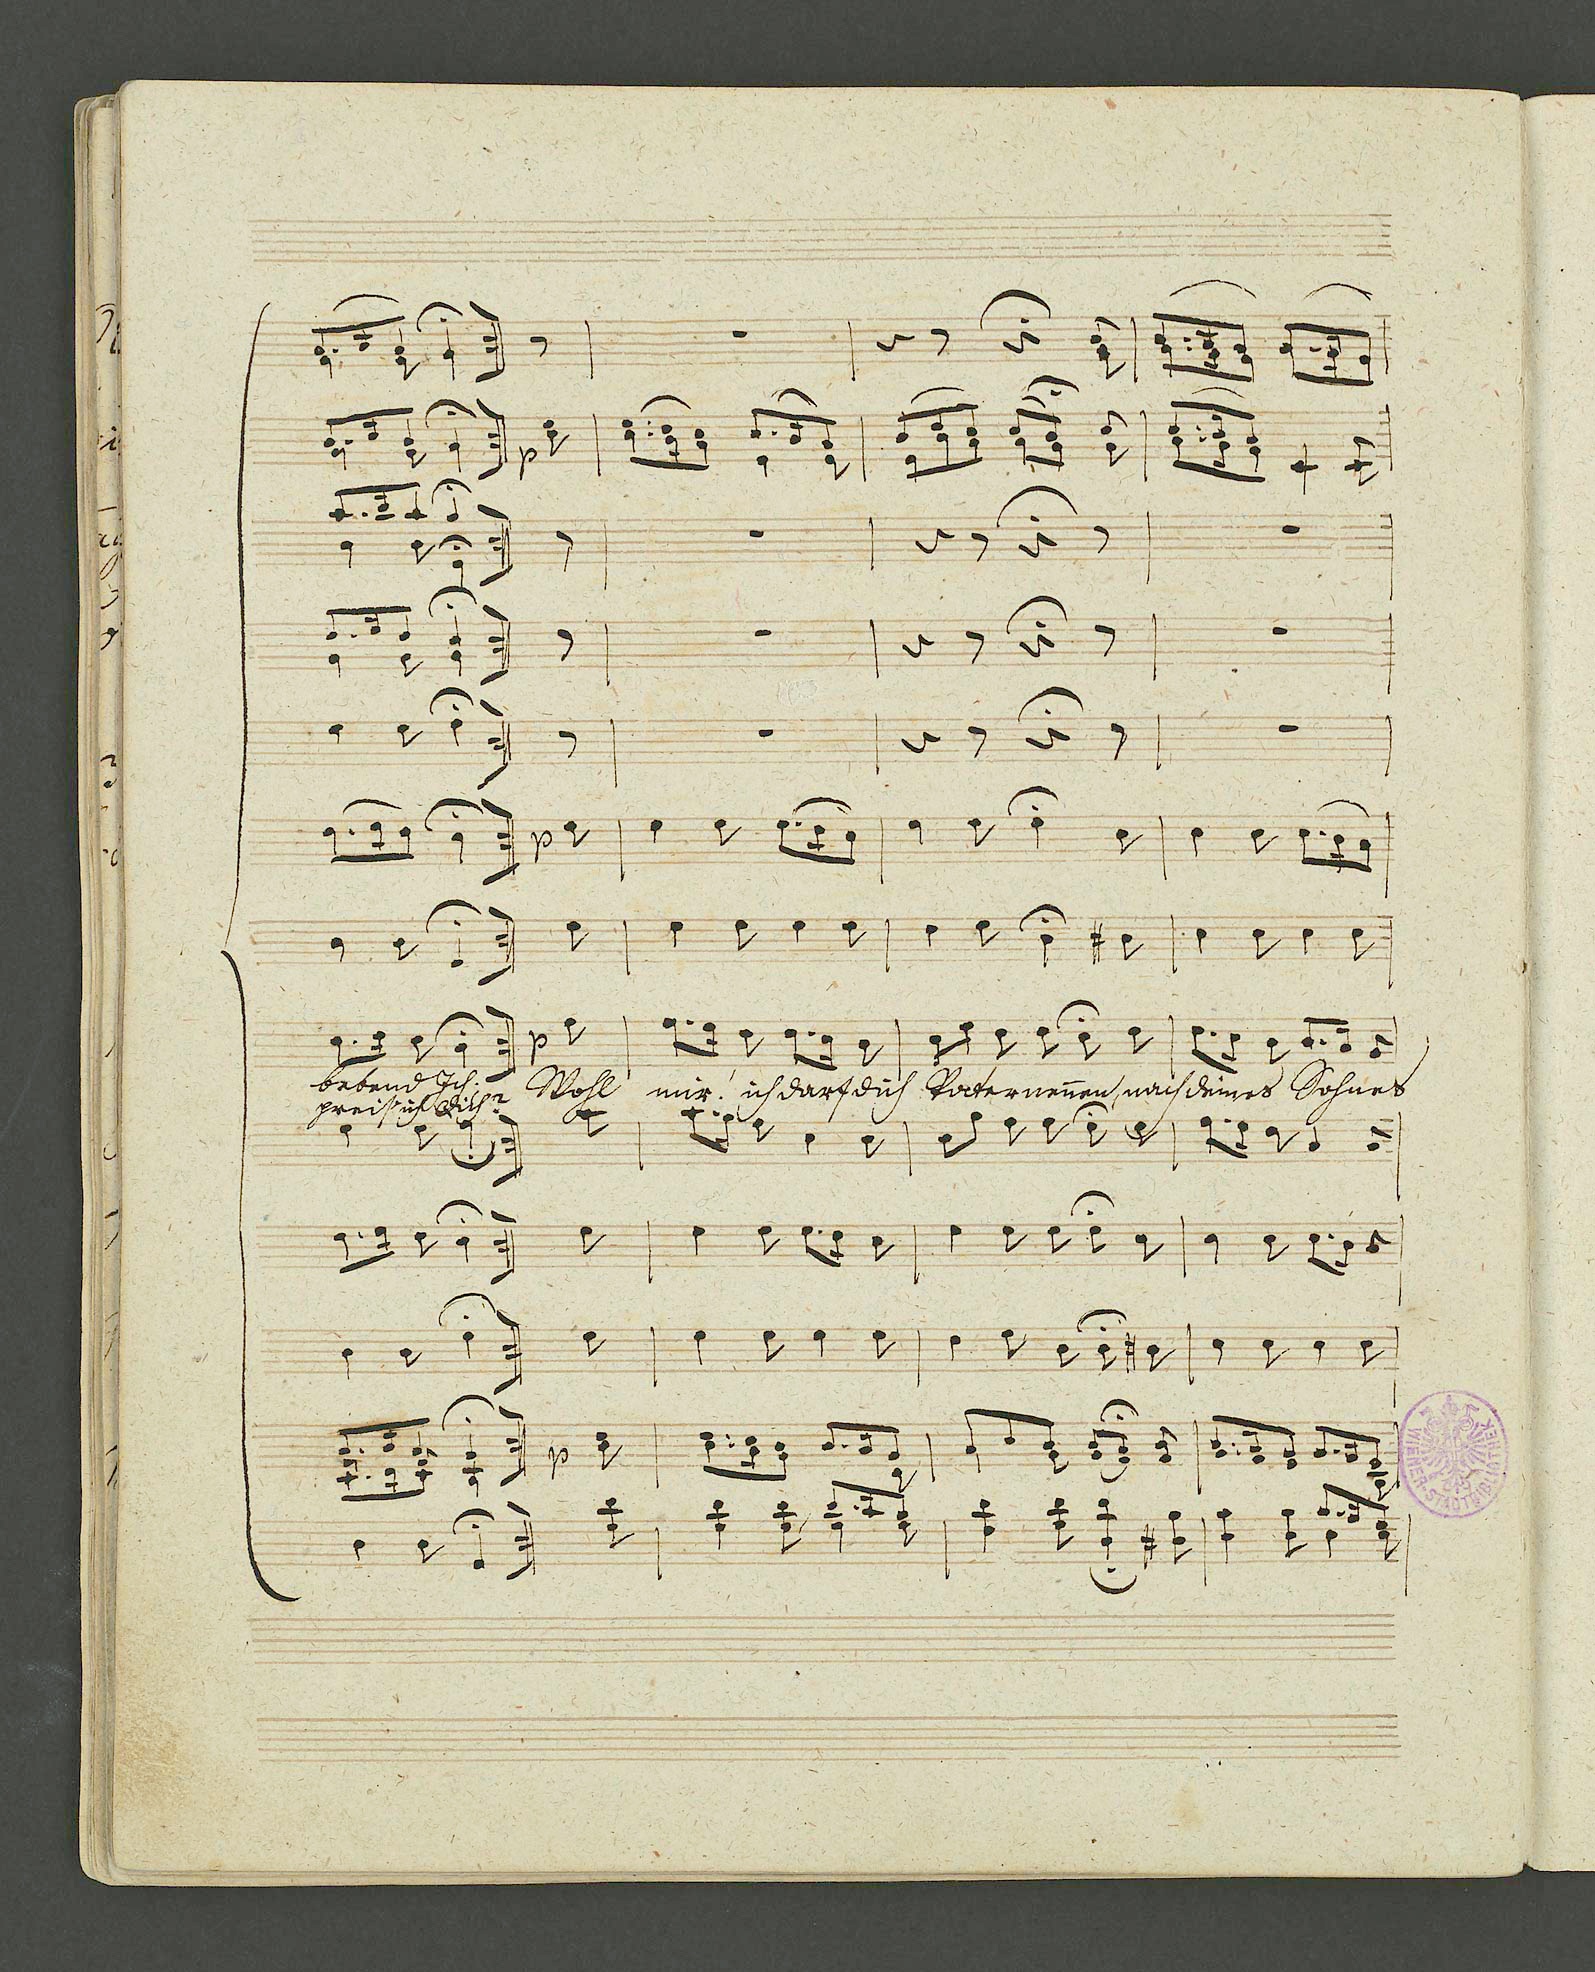 p
p
p
bebend Ich. Wohl mir! ich darf dich Vater nennen, nach deines Sohnes
preis' ich dich?
p
WIENER STADTBIBLIOTHEK